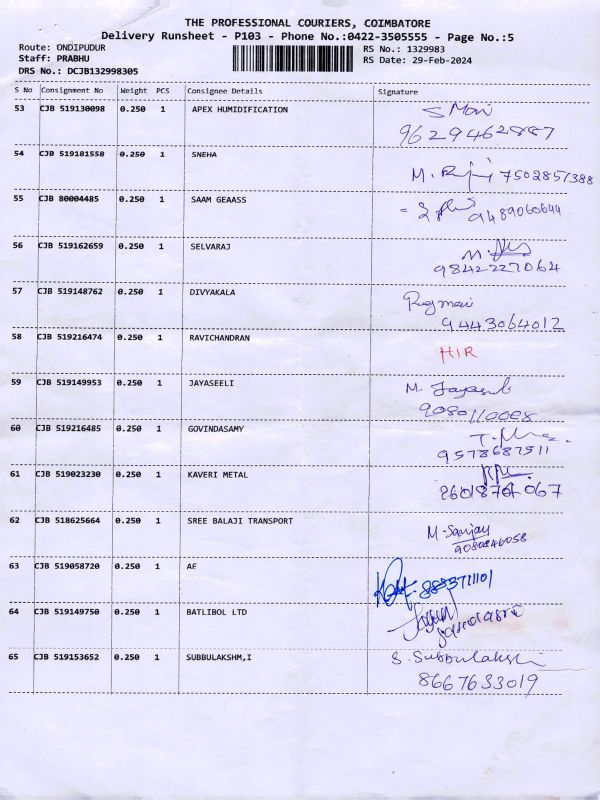 THE PROFESSIONAL COURIERS, COIMBATORE
Delivery Runsheet - P103 - Phone No.:0422-3505555 - Page No.:5
Route: ONDIPUDUR RS No.: 1329983
Staff: PRABHU RS Date: 29-Feb-2024
DRS No.: DCJB132998305
S No Consignment No Weight PCS Consignee Details Signature
53 CJB 519130098 0.250 1 APEX HUMIDIFICATION S Mani
9629462887
54 CJB 519181558 0.250 1 SNEHA
M. 7502851388
55 CJB 80004485 0.250 1 SAAM GEAASS
9489060644
56 CJB 519162659 0.250 1 SELVARAJ M.
9842227064
57 CJB 519148762 0.250 1 DIVYAKALA Rugmani
9443064012
58 CJB 519216474 0.250 1 RAVICHANDRAN
HIR
59 CJB 519149953 0.250 1 JAYASEELI M.
9080110008
60 CJB 519216485 0.250 1 GOVINDASAMY T.
9578687511
61 CJB 519023230 0.250 1 KAVERI METAL
067
62 CJB 518625664 0.250 1 SREE BALAJI TRANSPORT
M. Sanjay
9080846058
63 CJB 519058720 0.250 1 AF
8883711101
64 CJB 519149750 0.250 1 BATLIBOL LTD
65 CJB 519153652 0.250 1 SUBBULAKSHM,I S. Subbulakshi
8667633019